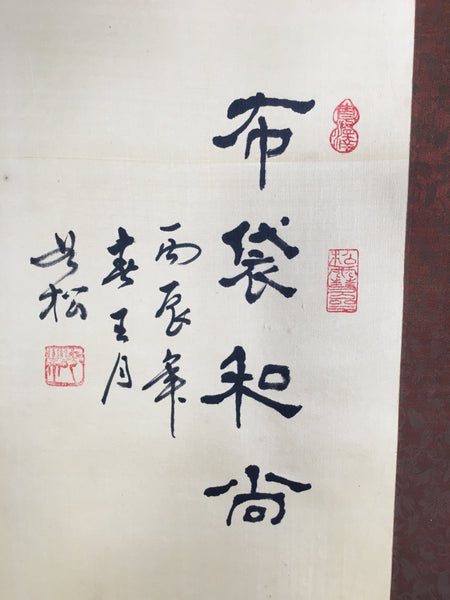 布袋和尚
丙辰年
春王月
如松